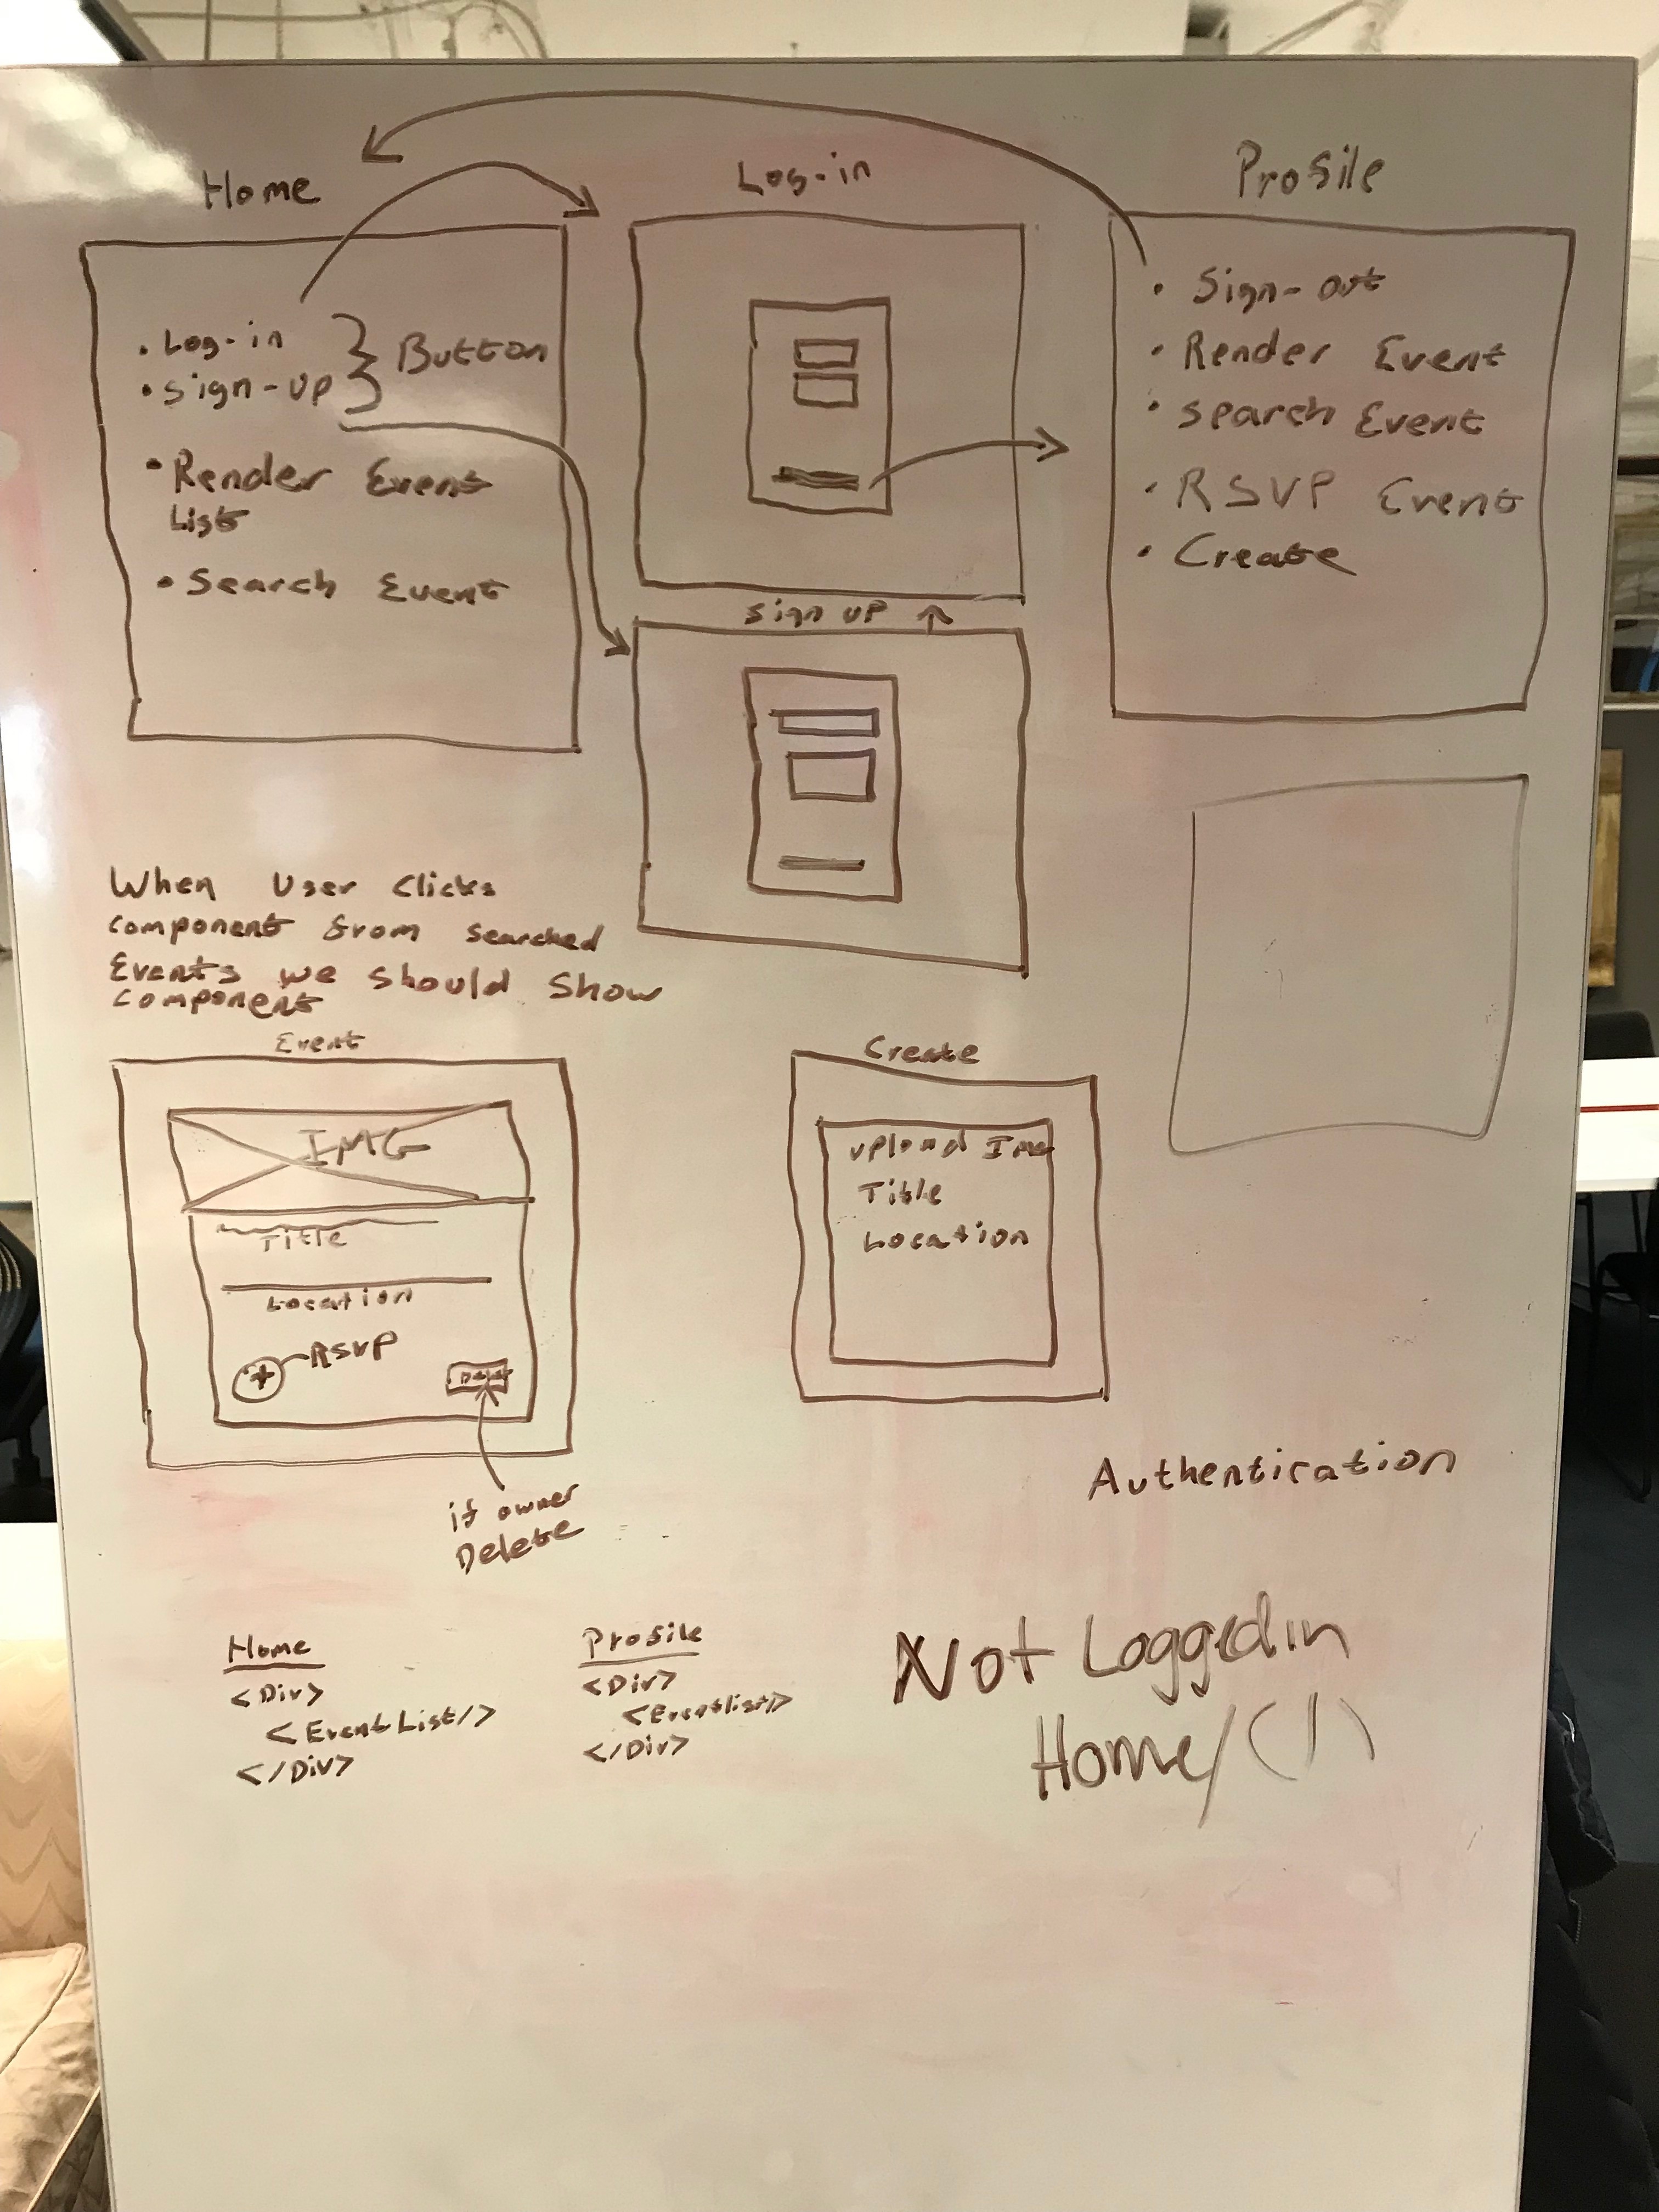 Home
Log-in
Profile
• Log-in
• Sign-up
Button
• Render Event
List
• Search Event
• Sign-out
• Render Event
• Search Event
• RSVP Event
• Create
Sign up
When User Clicks
component from searched
Events we should show
component
Event
IMG
Title
Location
RSVP
+
if owner
Delete
Create
Upload
Title
Location
Authentication
Home
<Div>
<EventList/>
</Div>
Profile
<Div>
<Eventlist/>
</Div>
Not Logged in
Home/(/)